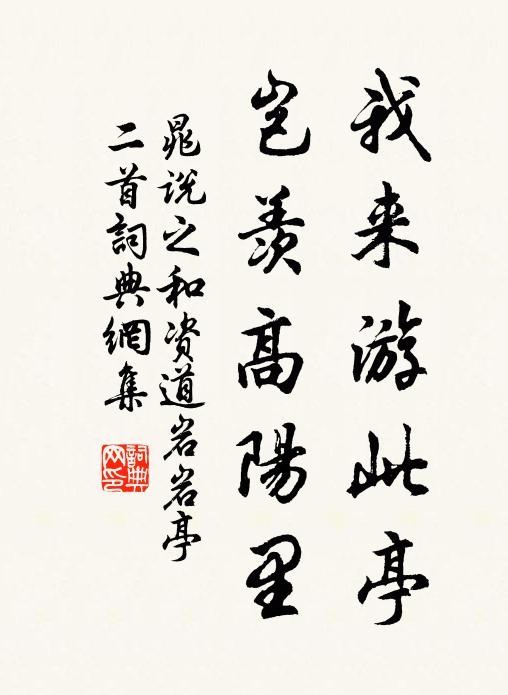 我来游此亭
岂羡高陽里
晁说之和资道岩岩亭
二首詞典網集
詞典网印